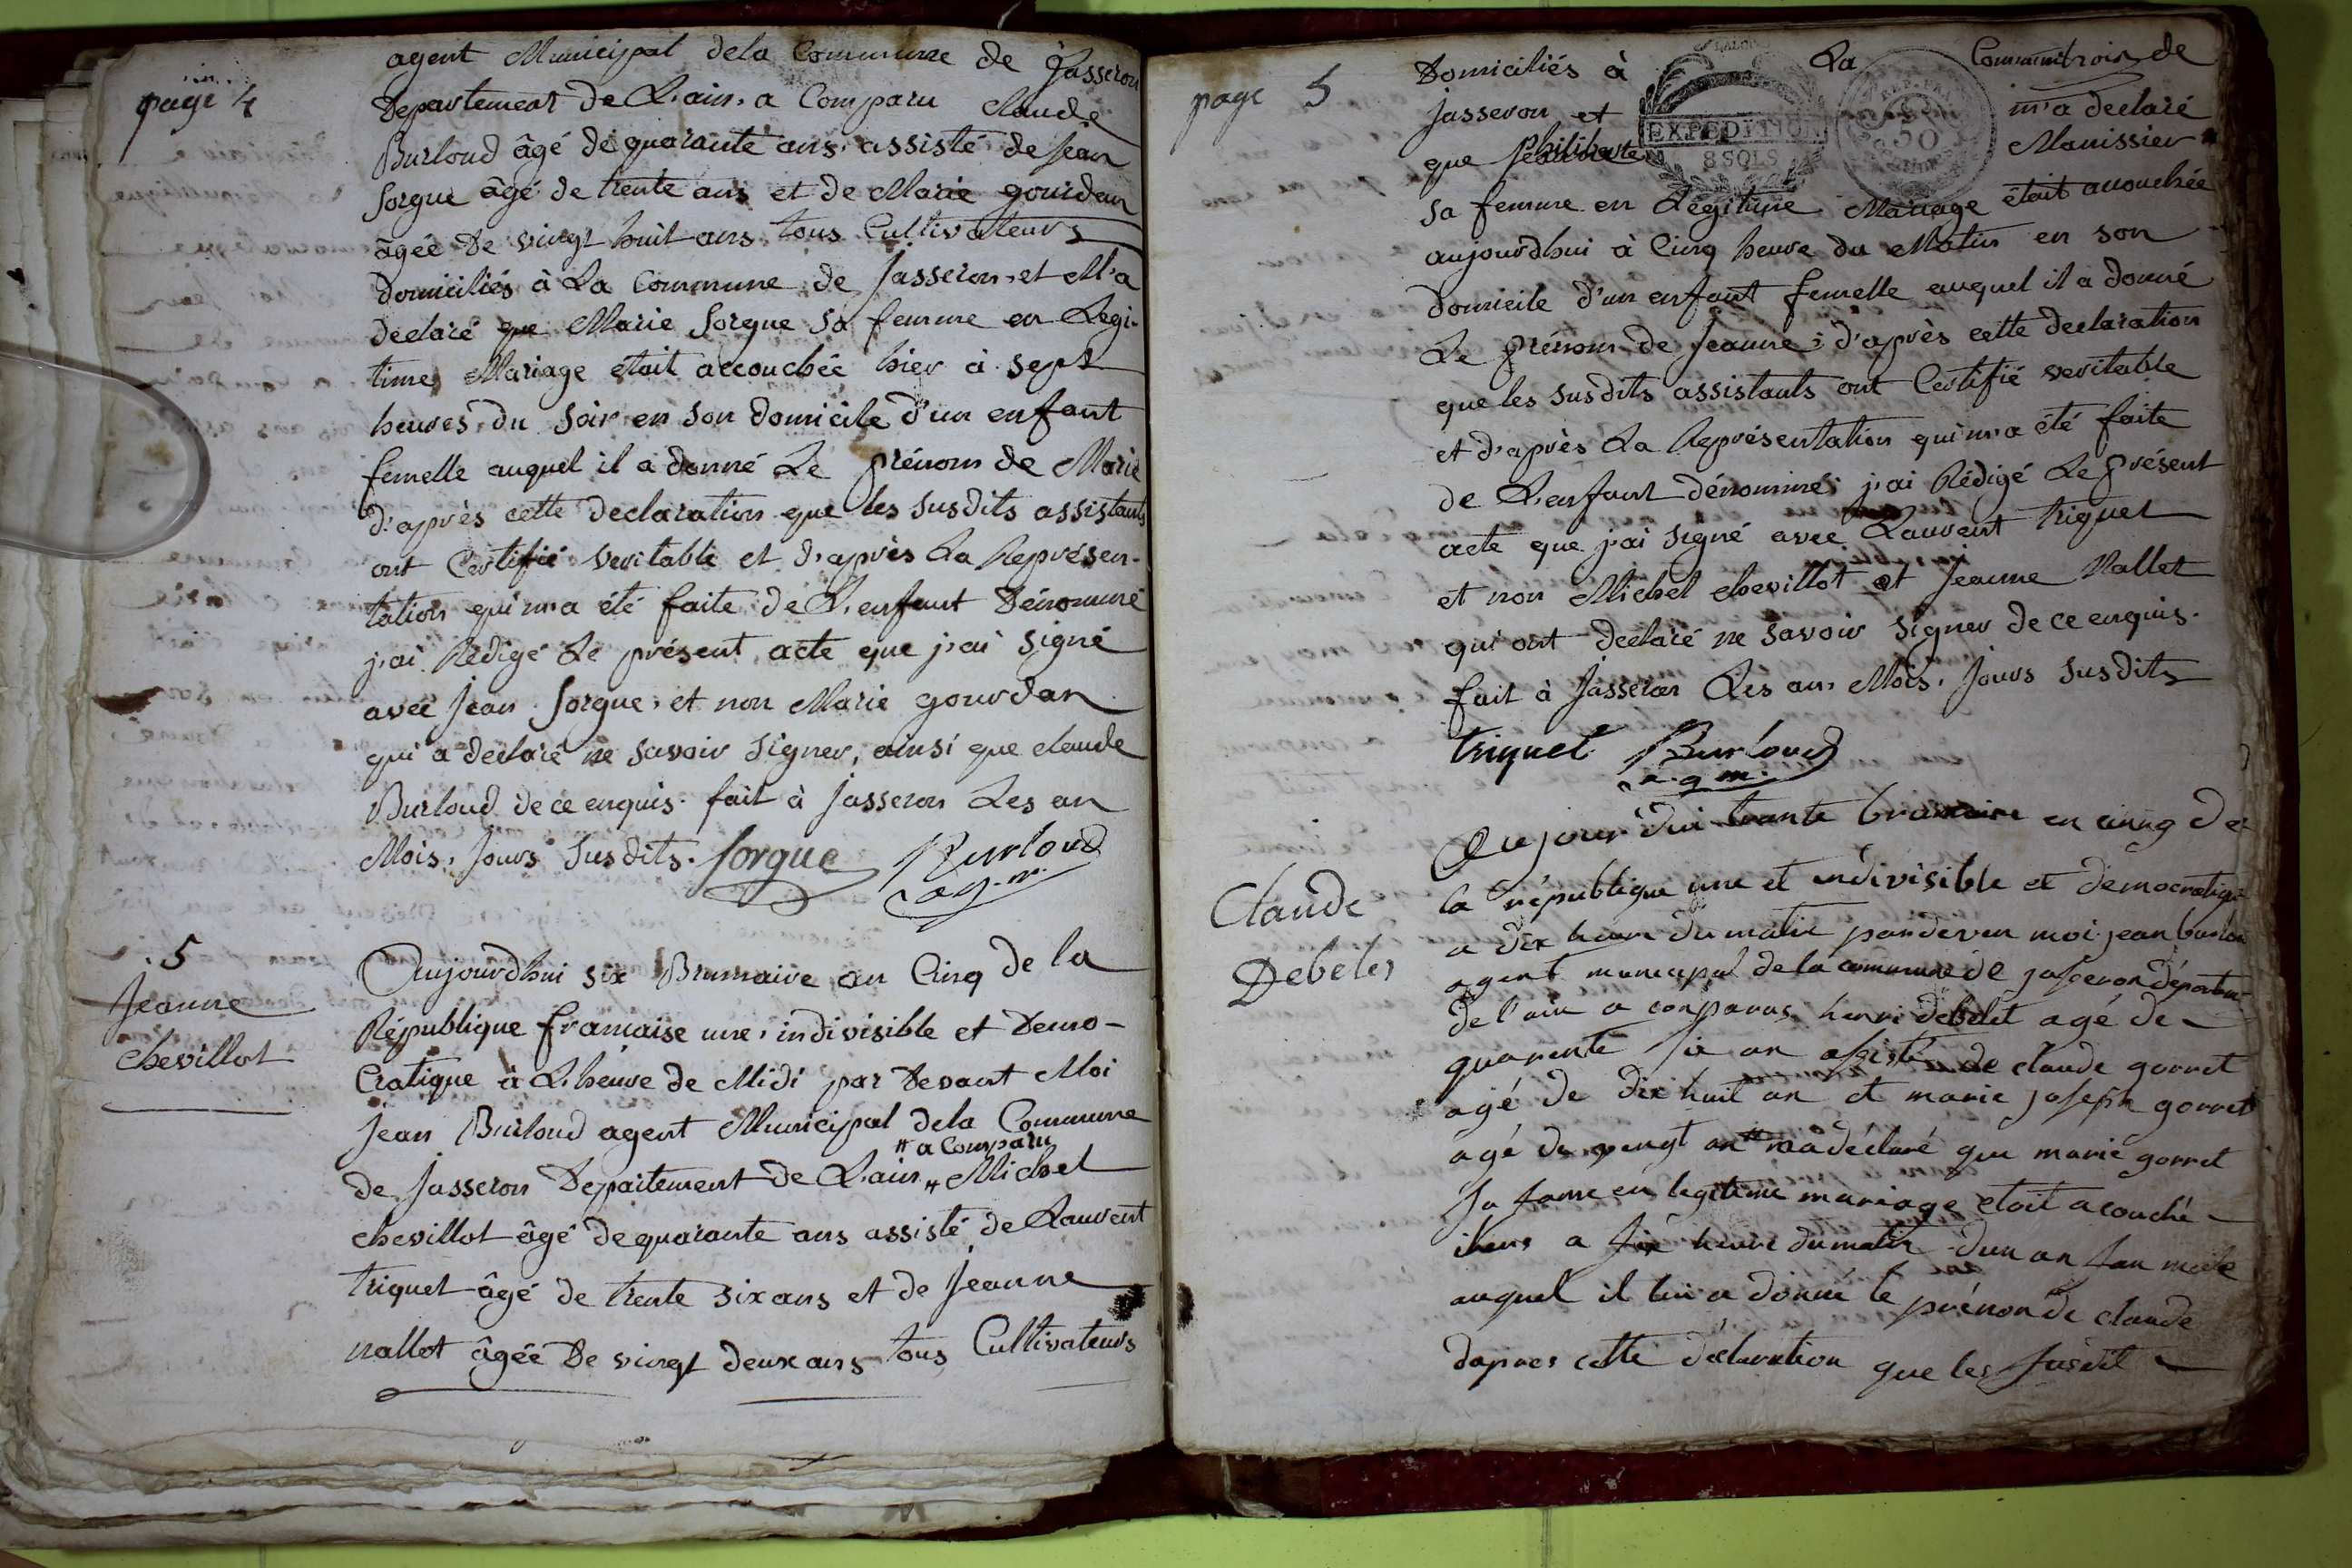 page 4
agent Municipal dela Commune de Jasseron
Departement de L'ain, a Comparu Claude
Burloud âgé de quarante ans, assisté de Jean
Sorgue âgé de trente ans et de Marie gourdan
âgée De vingt huit ans, tous Cultivateurs
domiciliés à La Commune de Jasseron, et M'a
déclaré que Marie Sorgue sa femme en Legi-
time Mariage était accouchée hier à sept
heures du soir en son domicile d'un enfant
femelle auquel il a donné Le prénom de Marie
d'après cette declaration que les susdits assistants
ont Certifié veritable et d'après La Représen-
tation qui m'a été faite de L'enfant Dénommé
j'ai Rédigé Le présent acte que j'ai signé
avec Jean Sorgue, et non Marie gourdan
qui a declaré ne savoir signer, ainsi que claude
Burloud de ce enquis. fait à Jasseron Les an
Mois, Jours susdits. Sorgue Burloud
ag. m.
5
Jeanne
chevillot
Aujourdhui six Brumaire an Cinq de la
République française une, indivisible et Demo-
Cratique à L'heure de Midi par Devant Moi
Jean Burloud agent Municipal dela Commune
# a Comparu
de Jasseron Departement de L'ain # Michel
chevillot âgé de quarante ans assisté de Laurent
triquet âgé de trente six ans et de Jeanne
nallet âgée De vingt deux ans tous Cultivateurs
page 5
Domiciliés à La Commune de
Jasseron et m'a declaré
que Philiberte Manissier
EXPEDITION
8 SOLS
50
sa femme en Légitime Mariage était accouchée
aujourdhui à Cinq heure du Matin en son
domicile d'un enfant femelle auquel il a donné
Le prénom de Jeanne; d'après cette declaration
que les susdits assistants ont Certifié veritable
et d'après La Représentation qui m'a été faite
de L'enfant dénommé, j'ai Rédigé Le présent
acte que j'ai signé avec Laurent triquet
et non Michel chevillot et Jeanne Nallet
qui ont declaré ne savoir signer de ce enquis.
fait à Jasseron Les an, Mois, Jours susdits
triquet Burloud
a. g. m.
Claude
Debeles
Aujour'dui trante bramaire en cinng de
la république une et indivisible et democratiq
a dix heure du matin pardevan moi jean burlou
agent municipal de la commune de jasseron départem
de l'ain a conparus henri debelet agé de
quarente six an asisté de claude gorret
agé de dix huit an et marie joseph gorret
agé de vengt an m'a déclaré que marie gorret
sa fame en legitime mariage etoit acouché
a six heure du matin dun an fan male
auquel il lui a donné le prénon de claude
dapres cette déclaration que les susdit